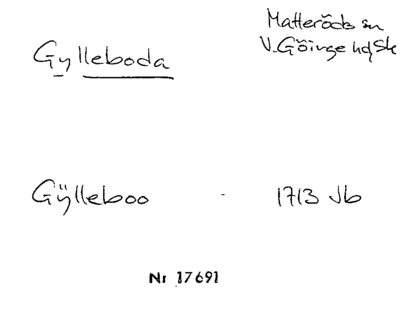 Gylleboda
Matteröds sn
V. Göinge hd, Sk
Gÿlleboo - 1713 Jb
Nr 17691